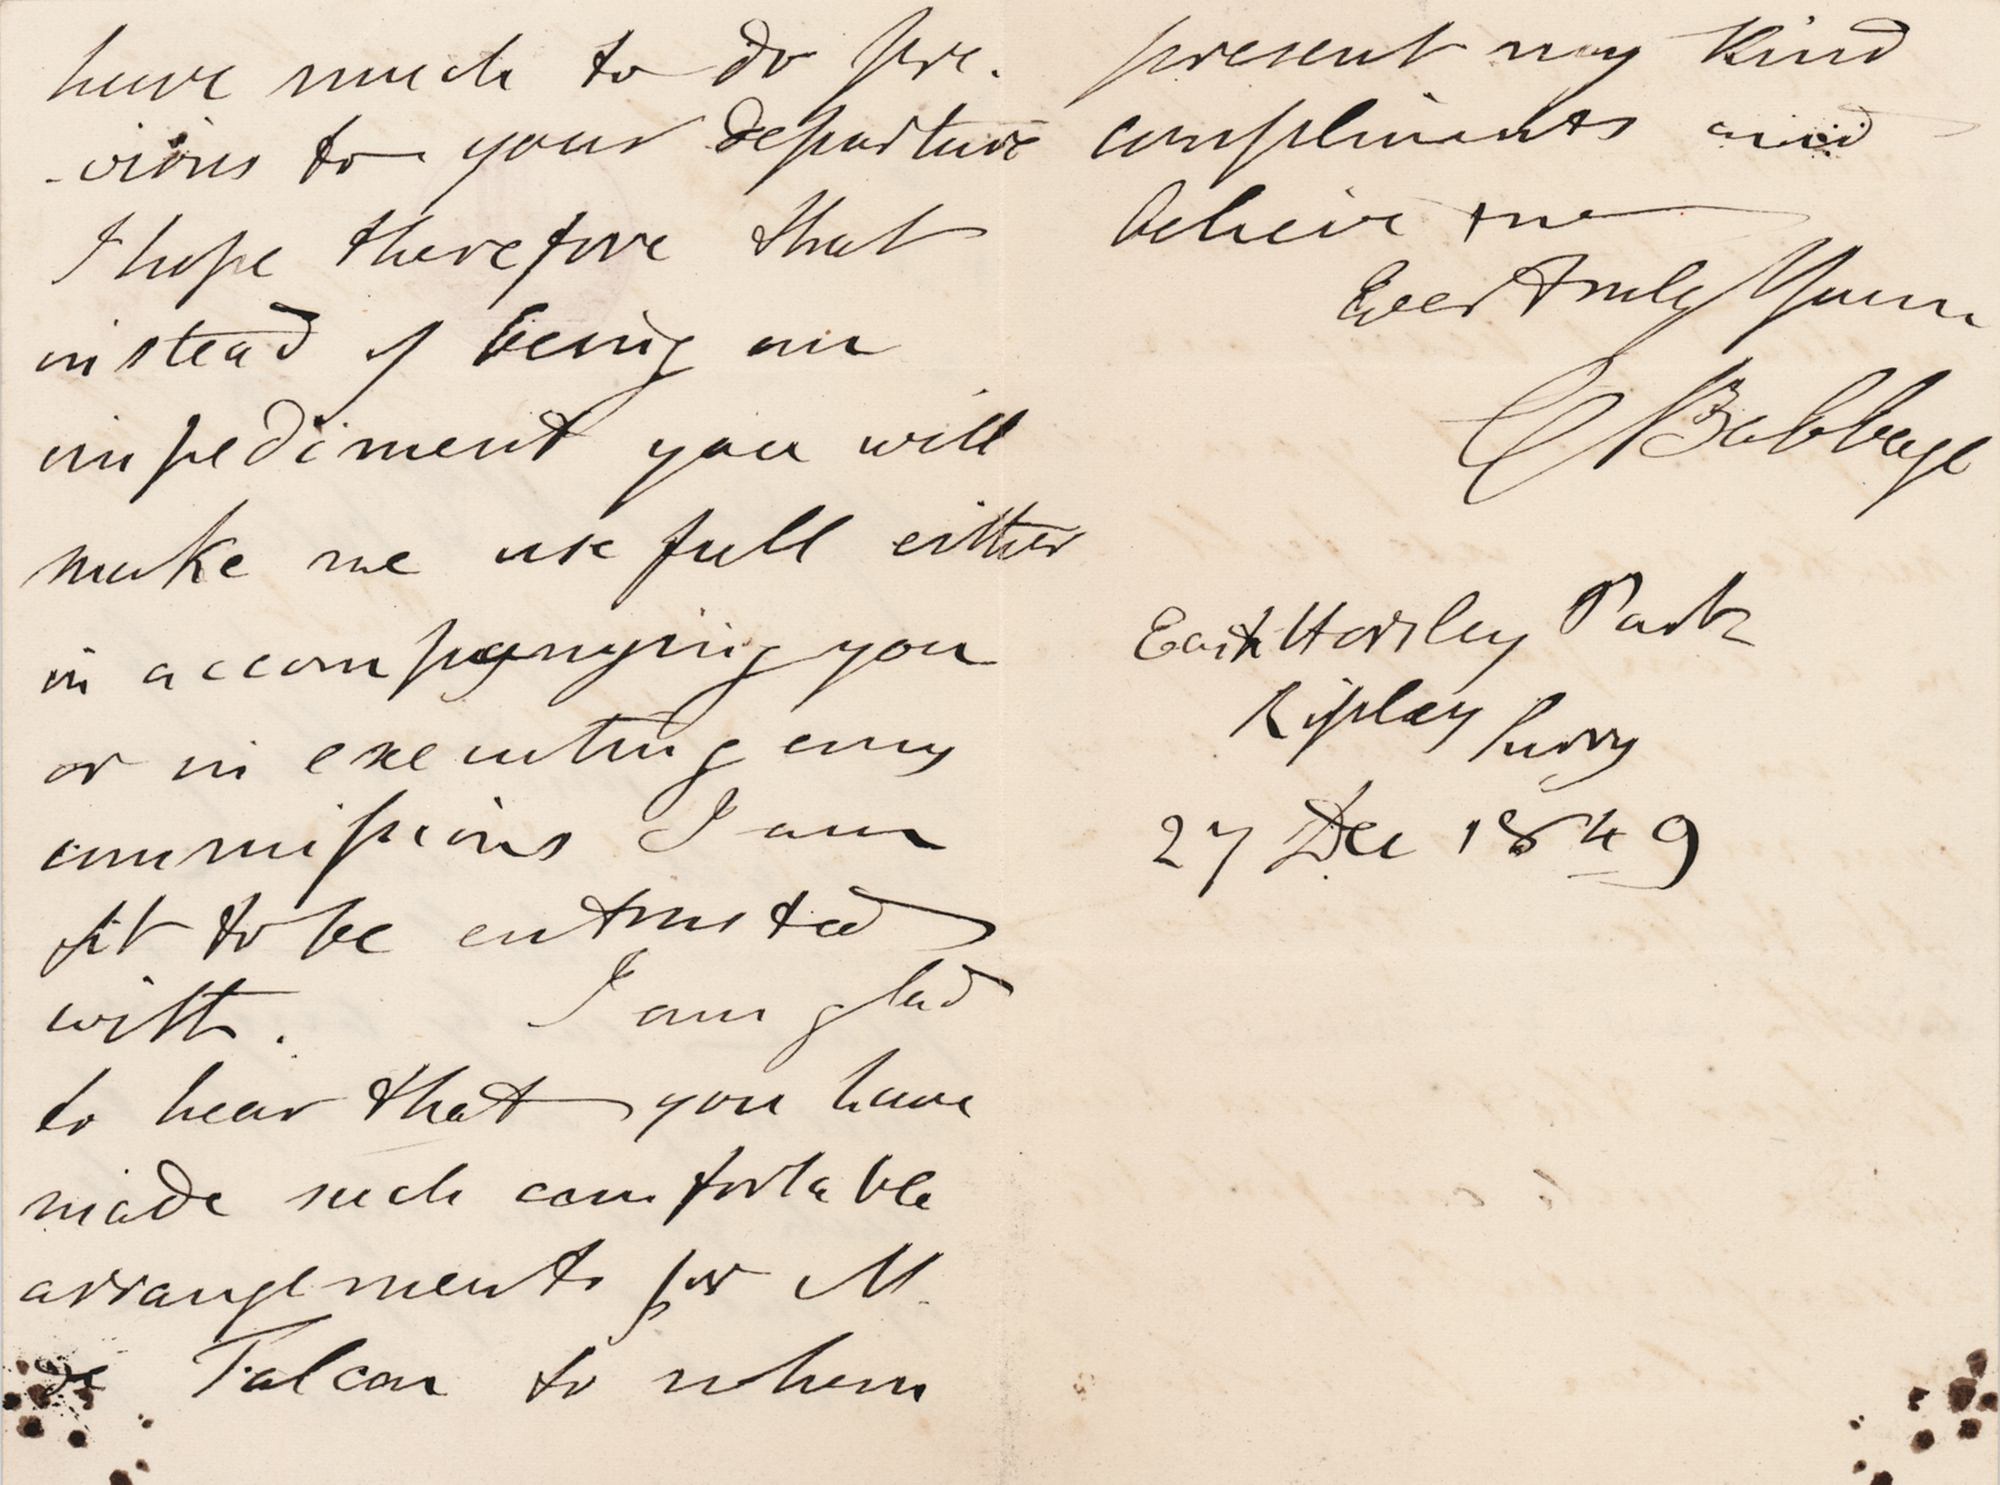 have much to do pre-
-vious to your departure
I hope therefore that
instead of being an
impediment you will
make me use full either
in accompanying you
or in executing any
commissions I am
fit to be entrusted
with. I am glad
to hear that you have
made such comfortable
arrangements for M.
de Falcon to whom
present my kind
compliments and
believe me
Ever truly Yours
C Babbage
East Horsley Park
Ripley Surry
27 Dec 1849